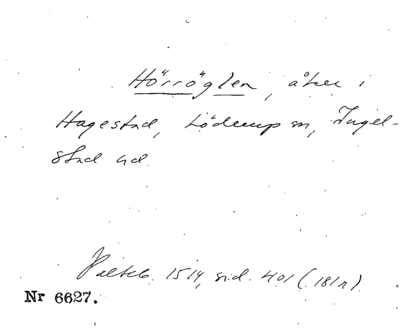 Hörröglen, åker i
Hagestad, Löderup sn, Ingel-
stad hd.
Palteb. 1514, sid. 401 (181r).
Nr 6627.